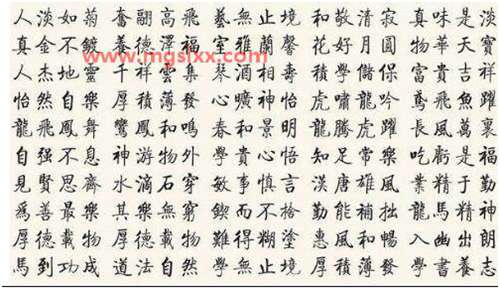 人淡如菊 奮翮高飛 藝無止境 和敬清寂 真味是淡
真金不鍍 養德 室雅蘭馨 花好月圓 物華天寶
人杰地靈 千祥雲集 琴 酒相壽 學儲保 富貴吉祥
怡然自樂 厚積薄發 心曠神怡 虎嘯龍吟 鳶飛魚躍
龍飛鳳舞 鸞鳳和鳴 春和景明 龍騰虎躍 長風萬裏
自强不息 神游物外 學貴心悟 知足常樂 吃虧是福
見賢思齊 水滴石穿 敏事慎言 漢唐雄風 業精于勤
爲善最樂 其樂無窮 鍥而不捨 勤能補拙 龍馬精神
厚德載物 厚德載物 難得糊塗 惠風和暢 入幽出朗
馬到功成 道法自然 學無止境 厚積薄發 學書養志
www.mgslxx.com